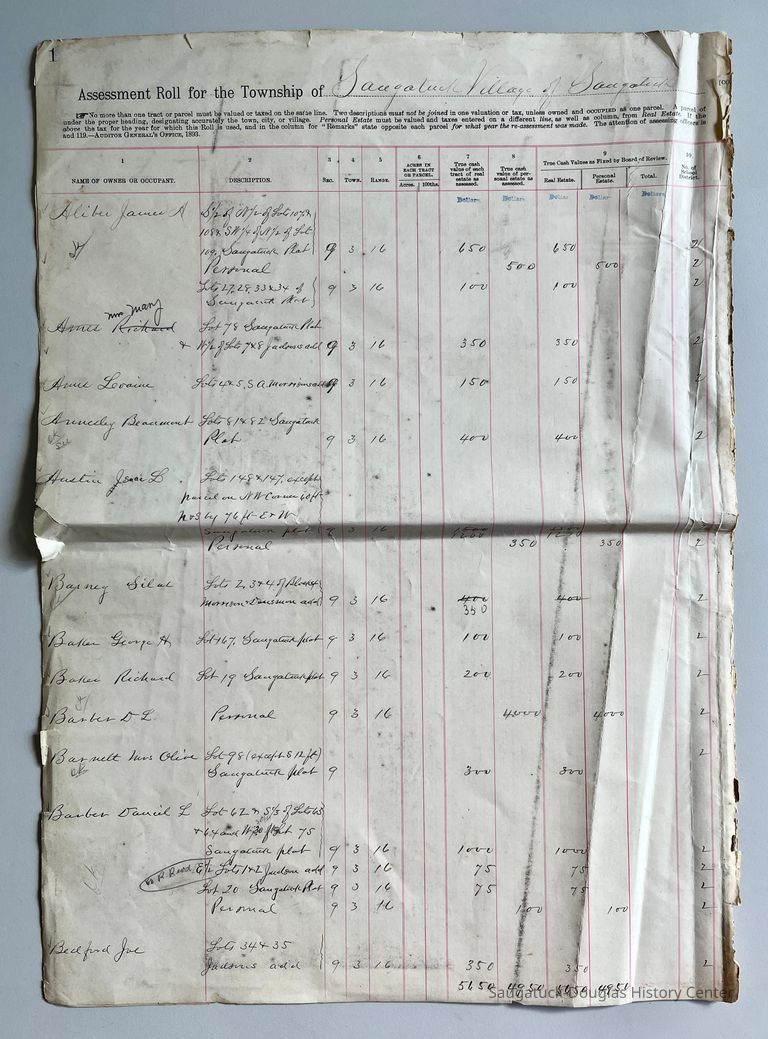 1
Assessment Roll for the Township of Saugatuck Village of Saugatuck
No more than one tract or parcel must be valued or taxed on the same line. Two descriptions must not be joined in one valuation or tax, unless owned and OCCUPIED as one parcel. A parcel of
under the proper heading, designating accurately the town, city, or village. Personal Estate must be valued and taxes entered on a different line, as well as column, from Real Estate. If the
above the tax for the year for which this Roll is used, and in the column for "Remarks" state opposite each parcel for what year the re-assessment was made. The attention of assessing officers is
and 119.—AUDITOR GENERAL'S OFFICE, 1893.
1 2 3 4 5 6 7 8 9 10
NAME OF OWNER OR OCCUPANT. DESCRIPTION. SEC. TOWN. RANGE. ACRES IN EACH TRACT OR PARCEL. Acres. 100ths. True cash value of each tract of real estate as assessed. True cash value of personal estate as assessed. True Cash Values as Fixed by Board of Review. Real Estate. Personal Estate. Total. No. of School District.
Dollars Dollars Dollars Dollars Dollars
Aliber James A S 1/2 of N 1/2 of Lots 107 &
108 & S W 1/4 of N 1/2 of Lot
109, Saugatuck Plat 9 3 16 650 650 2
Personal 500 500 2
Lots 27, 28, 33 & 34 of 9 3 16 100 100 2
Saugatuck Plat
Mrs Mary
Ames Richard Lot 78 Saugatuck Plat
& N 1/2 of Lots 7 & 8 Judsons add 9 3 16 350 350 2
Ames Levaine Lots 4 & 5, S A Morrisons add 9 3 16 150 150 2
Annesley Beaumont Lots 81 & 82 Saugatuck
Plat 9 3 16 400 400 2
Austin Isaac L Lots 148 & 147, except
parcel on N W Corner 60 ft
N & S by 76 ft E & W
Saugatuck plat 9 3 16 1200 1200 2
Personal 350 350 2
Barney Silas Lots 2, 3 & 4 of
Morrison add 9 3 16 400 400 2
350
Baker George H Lot 167, Saugatuck plat 9 3 16 100 100 2
Baker Richard Lot 19 Saugatuck plat 9 3 16 200 200 2
Barber D L Personal 9 3 16 4000 4000 2
Barnett Mrs Olive Lot 98 (except S 12 ft) 2
Saugatuck plat 9 300 300
Barber Daniel L Lot 62 & S 1/3 of Lots 63
& 64 and W 30 ft Lot 75
Saugatuck plat 9 3 16 1000 1000 2
E 1/2 Lots 1 & 2 Judsons add 9 3 16 75 75 2
Lot 20 Saugatuck Plat 9 3 16 75 75 2
Personal 9 3 16 100 100 2
Bedford Joe Lots 34 & 35
Judsons add 9 3 16 350 350 2
5650 4950 5650 4950
Saugatuck-Douglas History Center